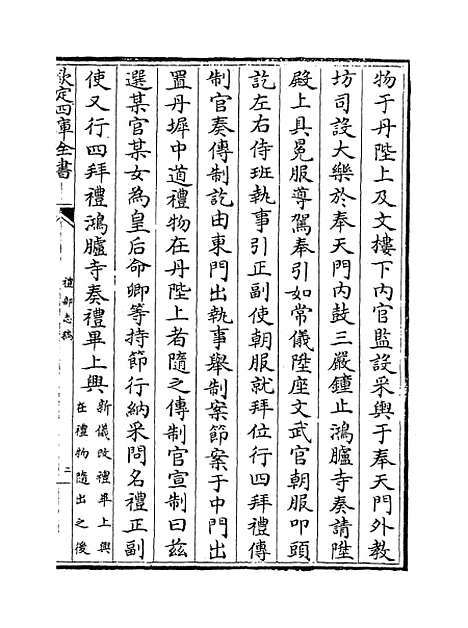 物于丹陛上及文樓下内官監設采輿于奉天門外教
坊司設大樂於奉天門内鼓三嚴鐘止鴻臚寺奏請陞
殿上具冕服導駕奉引如常儀陞座文武官朝服叩頭
訖左右侍班執事引正副使朝服就拜位行四拜禮傳
制官奏傳制訖由東門出執事舉制案節案于中門出
置丹墀中道禮物在丹陛上者隨之傳制官宣制曰兹
選某官某女為皇后命卿等持節行納采問名禮正副
使又行四拜禮鴻臚寺奏禮畢上興
新儀改禮畢上興
在禮物隨出之後
欽定四庫全書
禮部志稿
二